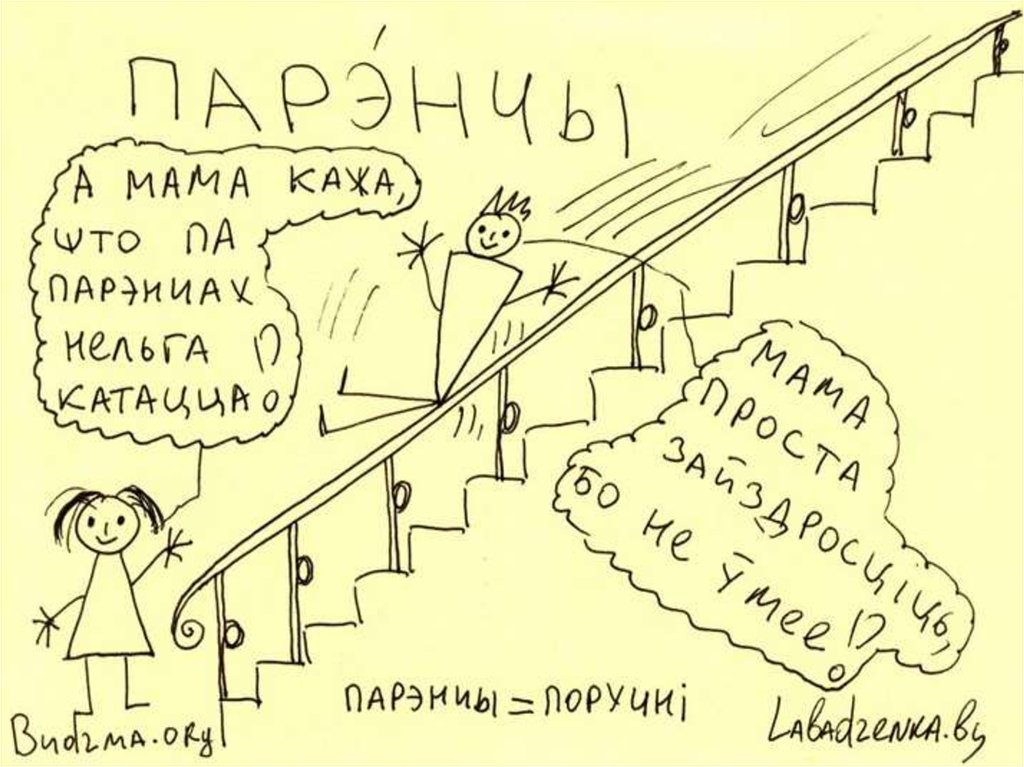 ПАРЭ́НЧЫ
А МАМА КАЖА,
ШТО ПА
ПАРЭНЧАХ
НЕЛЬГА
КАТАЦЦА!
МАМА
ПРОСТА
ЗАЙЗДРОСЦІЦЬ,
БО НЕ ЎМЕЕ!
ПАРЭНЧЫ = ПОРУЧНІ
Budzma.org
Labadzenka.by